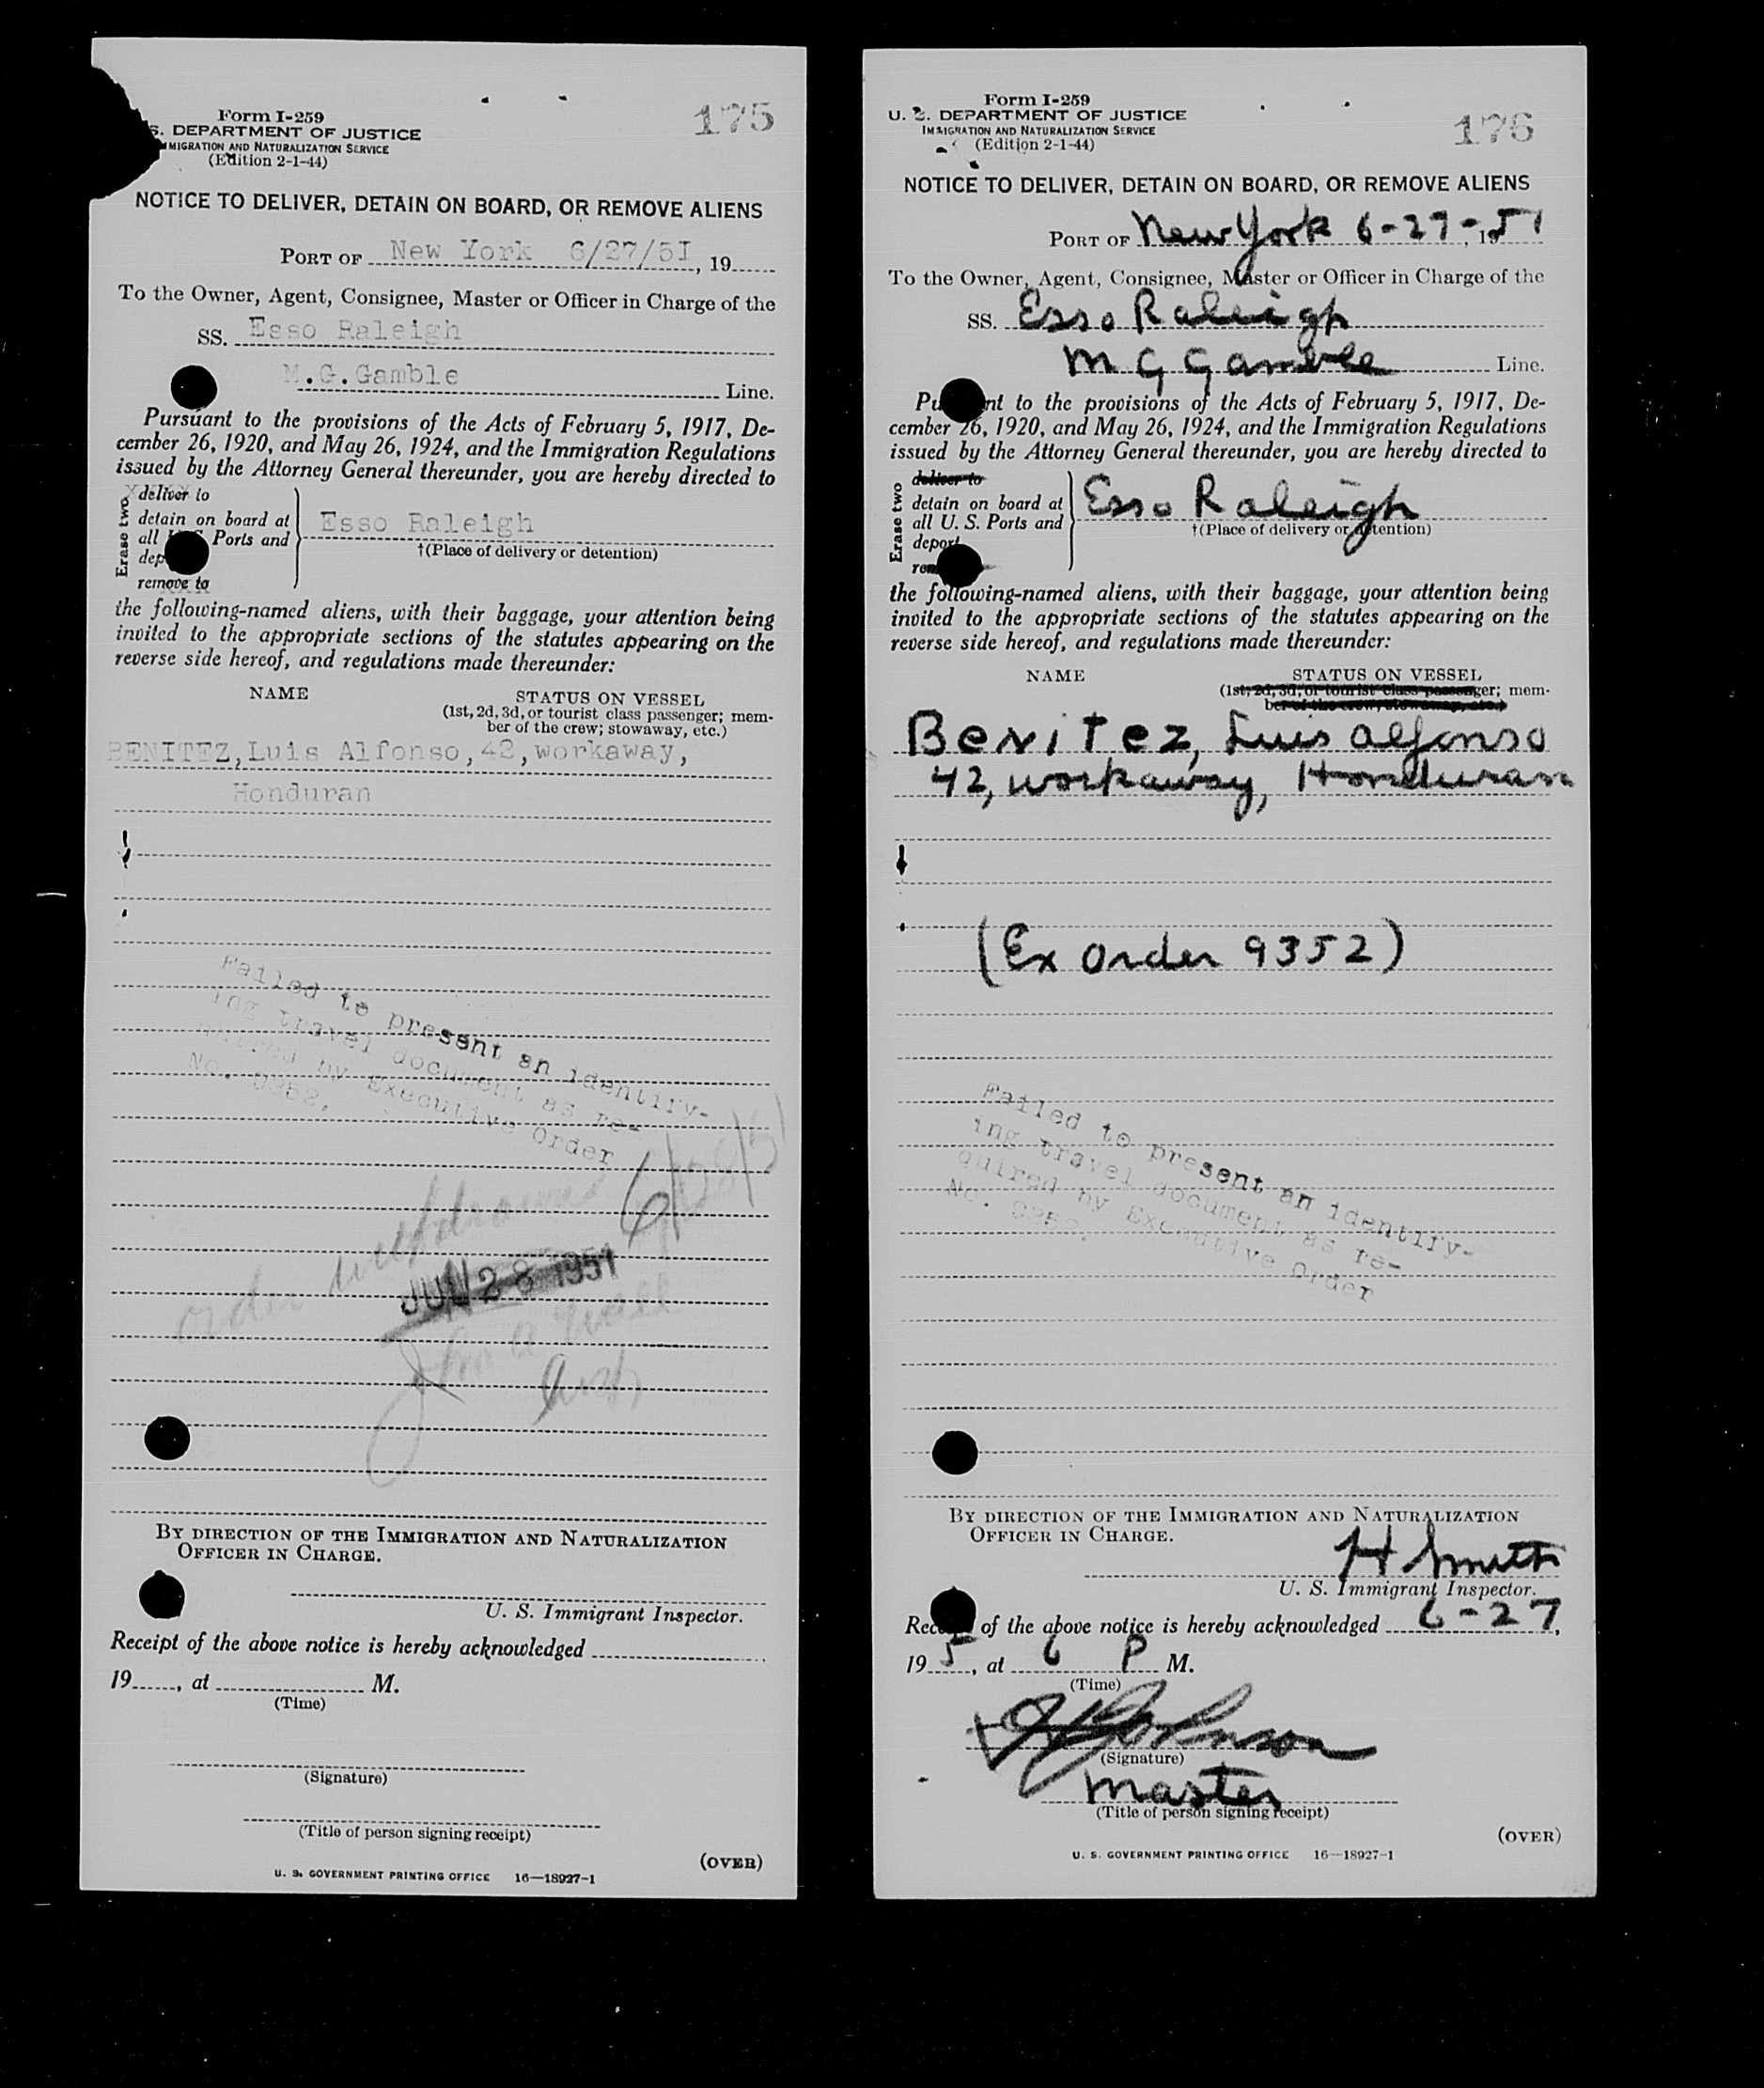 Form I-259
S. DEPARTMENT OF JUSTICE
MIGRATION AND NATURALIZATION SERVICE
(Edition 2-1-44)
175
NOTICE TO DELIVER, DETAIN ON BOARD, OR REMOVE ALIENS
PORT OF New York 6/27/51, 19
To the Owner, Agent, Consignee, Master or Officer in Charge of the
SS. Esso Raleigh
M.G.Gamble Line.
Pursuant to the provisions of the Acts of February 5, 1917, De-
cember 26, 1920, and May 26, 1924, and the Immigration Regulations
issued by the Attorney General thereunder, you are hereby directed to
Erase two
deliver to
detain on board at
all U. S. Ports and
dep
remove to
Esso Raleigh
†(Place of delivery or detention)
the following-named aliens, with their baggage, your attention being
invited to the appropriate sections of the statutes appearing on the
reverse side hereof, and regulations made thereunder:
NAME STATUS ON VESSEL
(1st, 2d, 3d, or tourist class passenger; mem-
ber of the crew; stowaway, etc.)
BENITEZ, Luis Alfonso, 42, workaway,
Honduran
Failed to present an identify-
ing travel document as re-
quired by Executive Order
No. 9352.
6/28/51
order withdrawn
JUN 28 1951
BY DIRECTION OF THE IMMIGRATION AND NATURALIZATION
OFFICER IN CHARGE.
U. S. Immigrant Inspector.
Receipt of the above notice is hereby acknowledged
19, at M.
(Time)
(Signature)
(Title of person signing receipt)
(OVER)
U. S. GOVERNMENT PRINTING OFFICE 16—18927-1
Form I-259
U. S. DEPARTMENT OF JUSTICE
IMMIGRATION AND NATURALIZATION SERVICE
(Edition 2-1-44)
176
NOTICE TO DELIVER, DETAIN ON BOARD, OR REMOVE ALIENS
PORT OF New York 6-27-, 1951
To the Owner, Agent, Consignee, Master or Officer in Charge of the
SS. Esso Raleigh
M G Gamble Line.
Pu nt to the provisions of the Acts of February 5, 1917, De-
cember 26, 1920, and May 26, 1924, and the Immigration Regulations
issued by the Attorney General thereunder, you are hereby directed to
Erase two
deliver to
detain on board at
all U. S. Ports and
deport
rem
Esso Raleigh
†(Place of delivery or detention)
the following-named aliens, with their baggage, your attention being
invited to the appropriate sections of the statutes appearing on the
reverse side hereof, and regulations made thereunder:
NAME STATUS ON VESSEL
(1st, 2d, 3d, or tourist class passenger; mem-
ber of the crew; stowaway, etc.)
Benitez, Luis Alfonso
42, workaway, Honduran
(Ex Order 9352)
Failed to present an identify-
ing travel document as re-
quired by Executive Order
No. 9352.
BY DIRECTION OF THE IMMIGRATION AND NATURALIZATION
OFFICER IN CHARGE.
H Smith
U. S. Immigrant Inspector.
Receipt of the above notice is hereby acknowledged 6-27,
195, at 6 P M.
(Time)
Johnson
(Signature)
Master
(Title of person signing receipt)
(OVER)
U. S. GOVERNMENT PRINTING OFFICE 16—18927-1